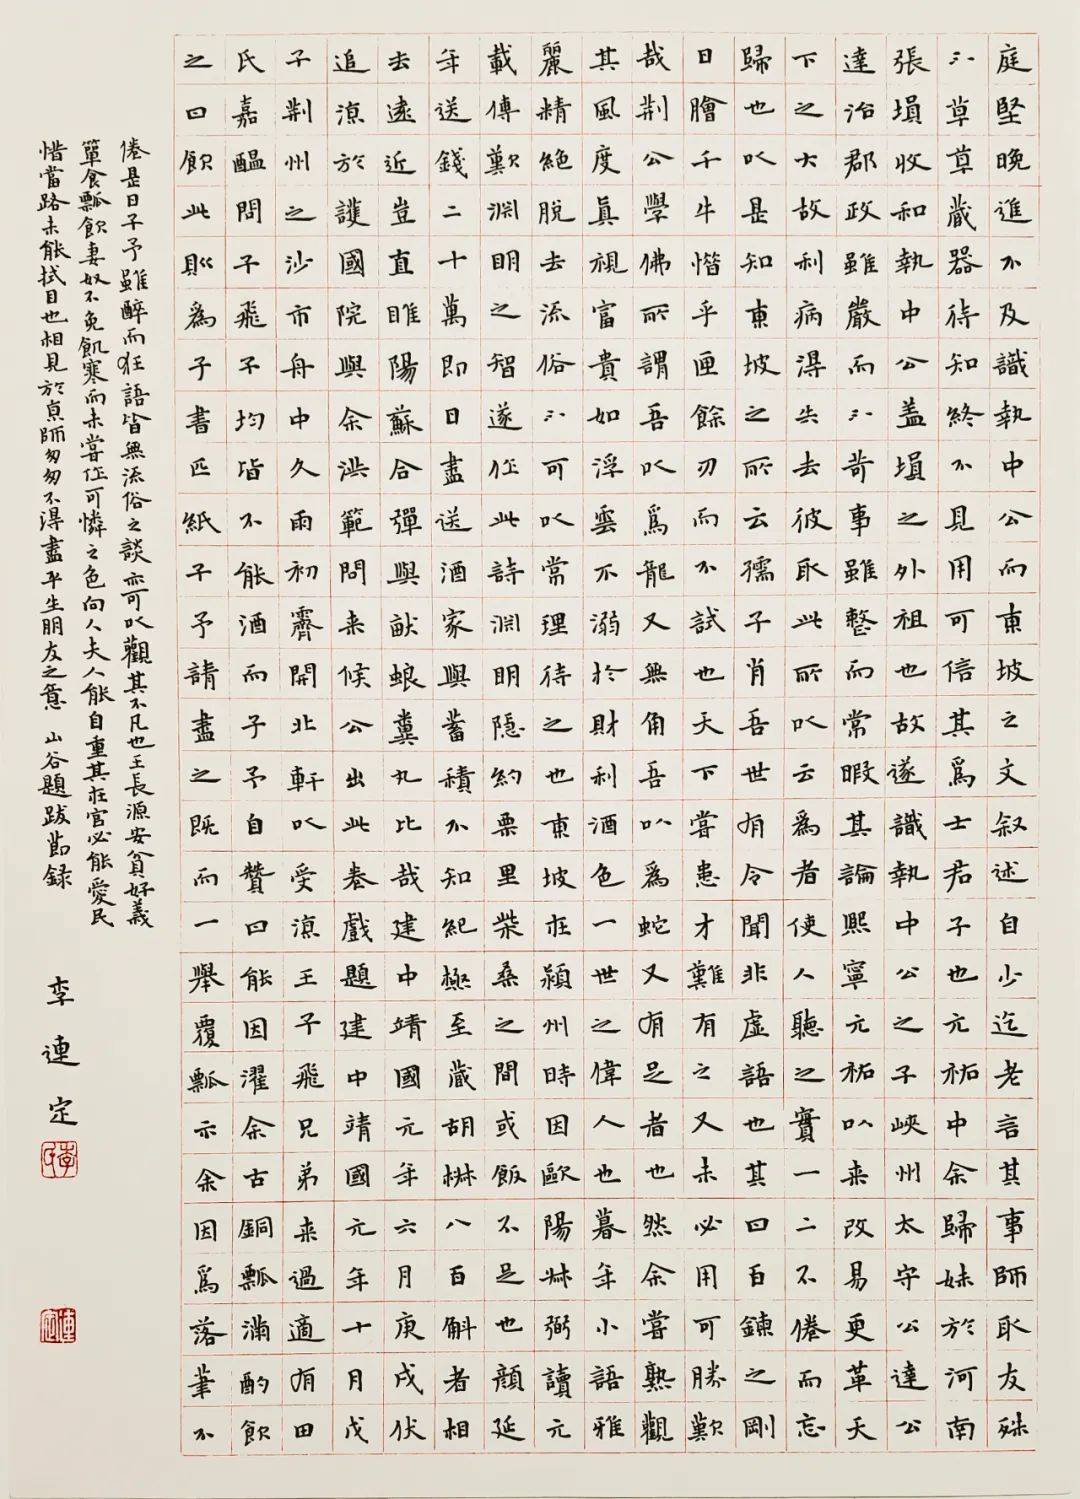 庭堅晚進不及識執中公而東坡之文叙述自少迄老言其事師取友殊
不草草藏器待知終不見用可信其爲士君子也元祐中余歸妹於河南
張塤收和執中公盖塤之外祖也故遂識執中公之子峽州太守公達公
達治郡政雖嚴而不苛事雖整而常暇其論熙寧元祐以来改易更革天
下之大故利病得失去彼取此所以云爲者使人聽之實一二不倦而忘
歸也以是知東坡之所云孺子肖吾世有令聞非虛語也其曰百鍊之剛
日膾千牛惜乎匣餘刃而不試也天下嘗患才難有之又未必用可勝歎
哉荆公學佛所謂吾以爲龍又無角吾以爲蛇又有足者也然余嘗熟觀
其風度真視富貴如浮雲不溺於財利酒色一世之偉人也暮年小語雅
麗精絕脫去流俗不可以常理待之也東坡在潁州時因歐陽叔弼讀元
載傳歎淵明之智遂作此詩淵明隱約栗里柴桑之間或飯不足也顏延
年送錢二十萬即日盡送酒家與蓄積不知紀極至藏胡椒八百斛者相
去遠近豈直睢陽蘇合彈與蜋糞丸比哉建中靖國元年六月庚戌伏
追涼於護國院與余洪範問来候公出此卷戲題建中靖國元年十月戊
子荆州之沙市舟中久雨初霽開北軒以受涼王子飛兄弟来過適有田
氏嘉醞問子飛子均皆不能酒而子予自贊曰能因濯余古銅瓢滿酌飲
之曰飲此則爲子書匹紙子予請盡之既而一舉覆瓢示余因爲落筆不
倦是日子予雖醉而狂語皆無流俗之談亦可以觀其不凡也王長源安貧好義
簞食瓢飲妻奴不免飢寒而未嘗作可憐之色向人夫人能自重其在官必能愛民
惜當路未能拭目也相見於京師匆匆不得盡平生朋友之意 山谷題跋節錄
李連定
李氏
連定